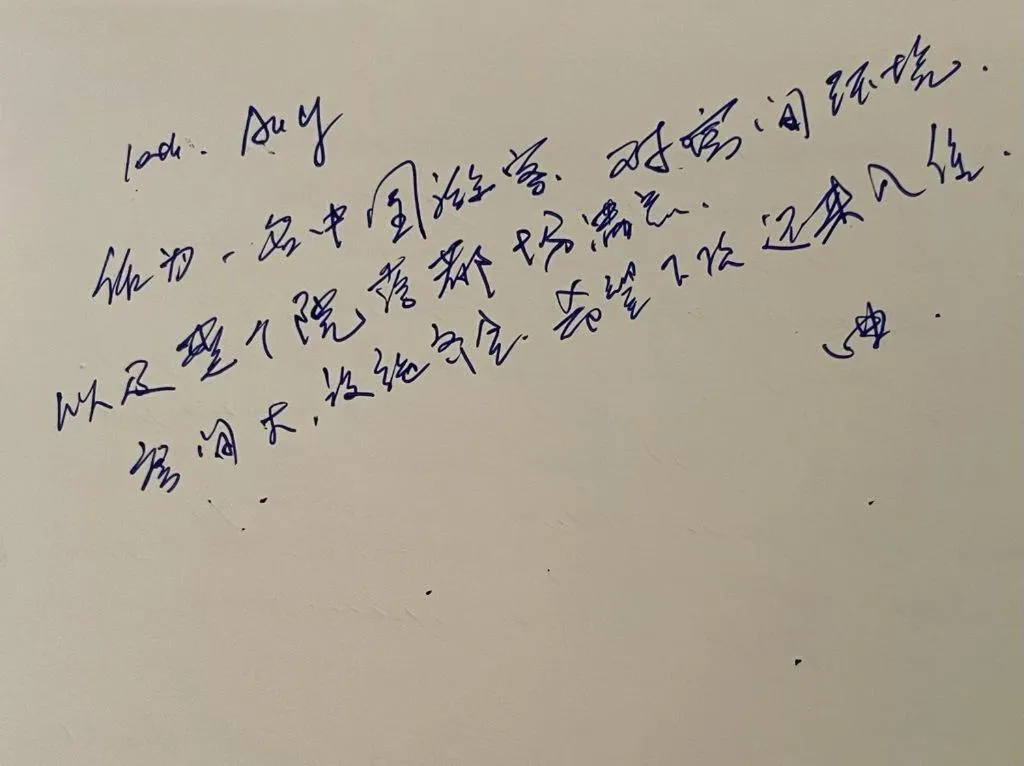 10th. Aug
作为一名中国游客、对房间环境.
以及整个院落都十分满意.
房间大,设施齐全.希望下次还来入住.